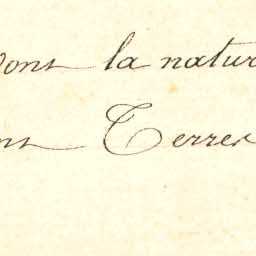 Dont la natur
ns Terres